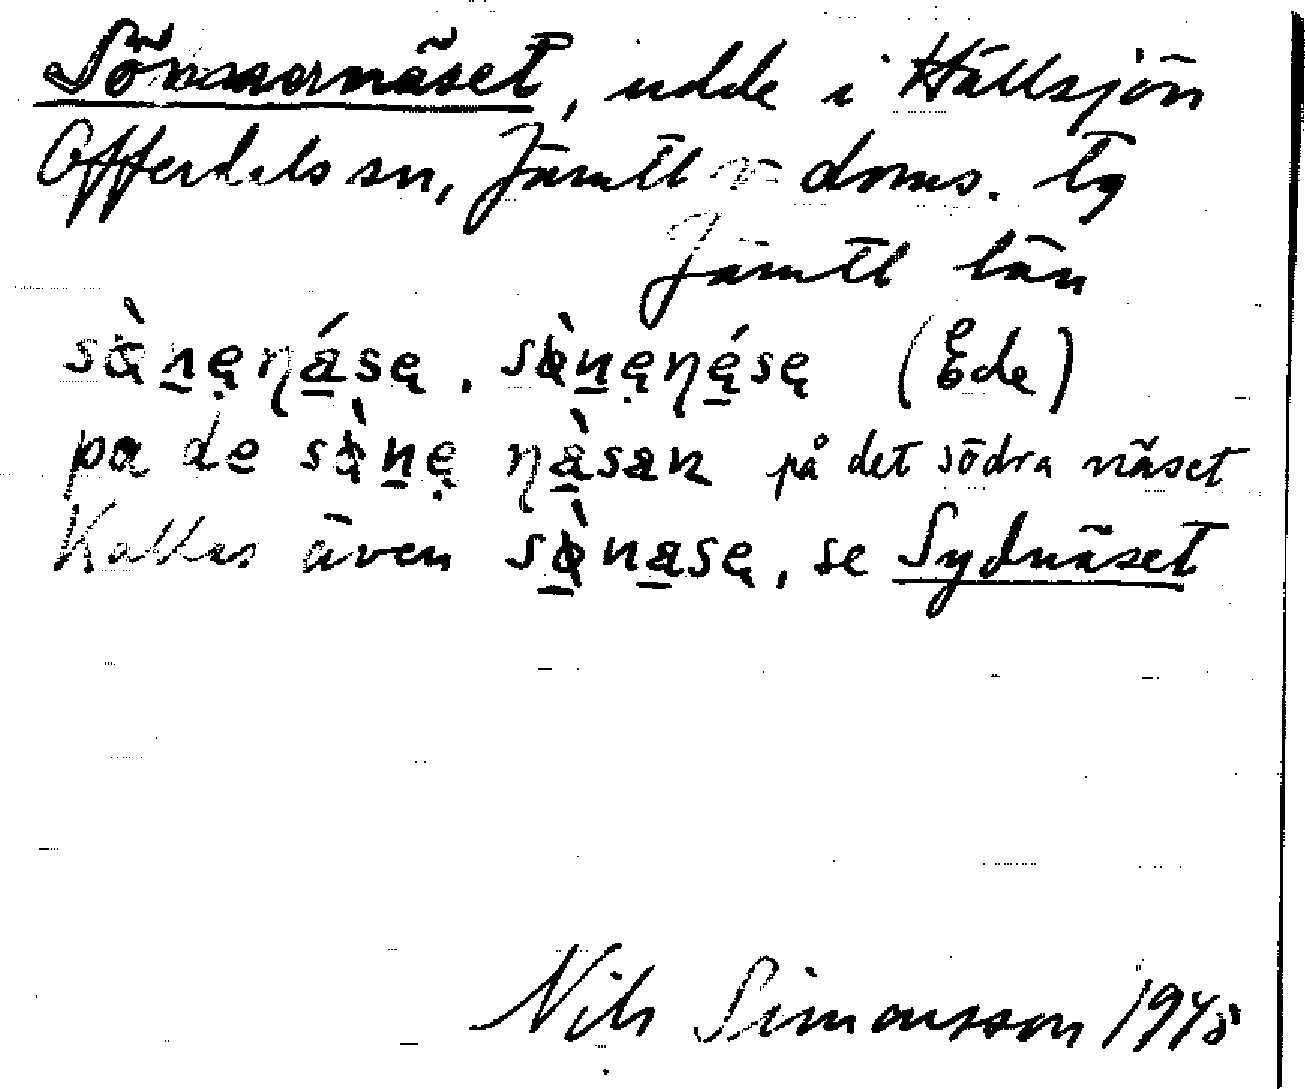 Sönnernäset, udde i Hällsjön
Offerdals sn, Jämtl v doms. lg
Jämtl län
sὰn̠ęŋása̠ę, sὰn̠ęŋę́sę (Ede)
pa de sὰn̠ę ŋàsan på det södra näset
Kallas även sὰnasę, se Sydnäset
Nils Simonsson 1945